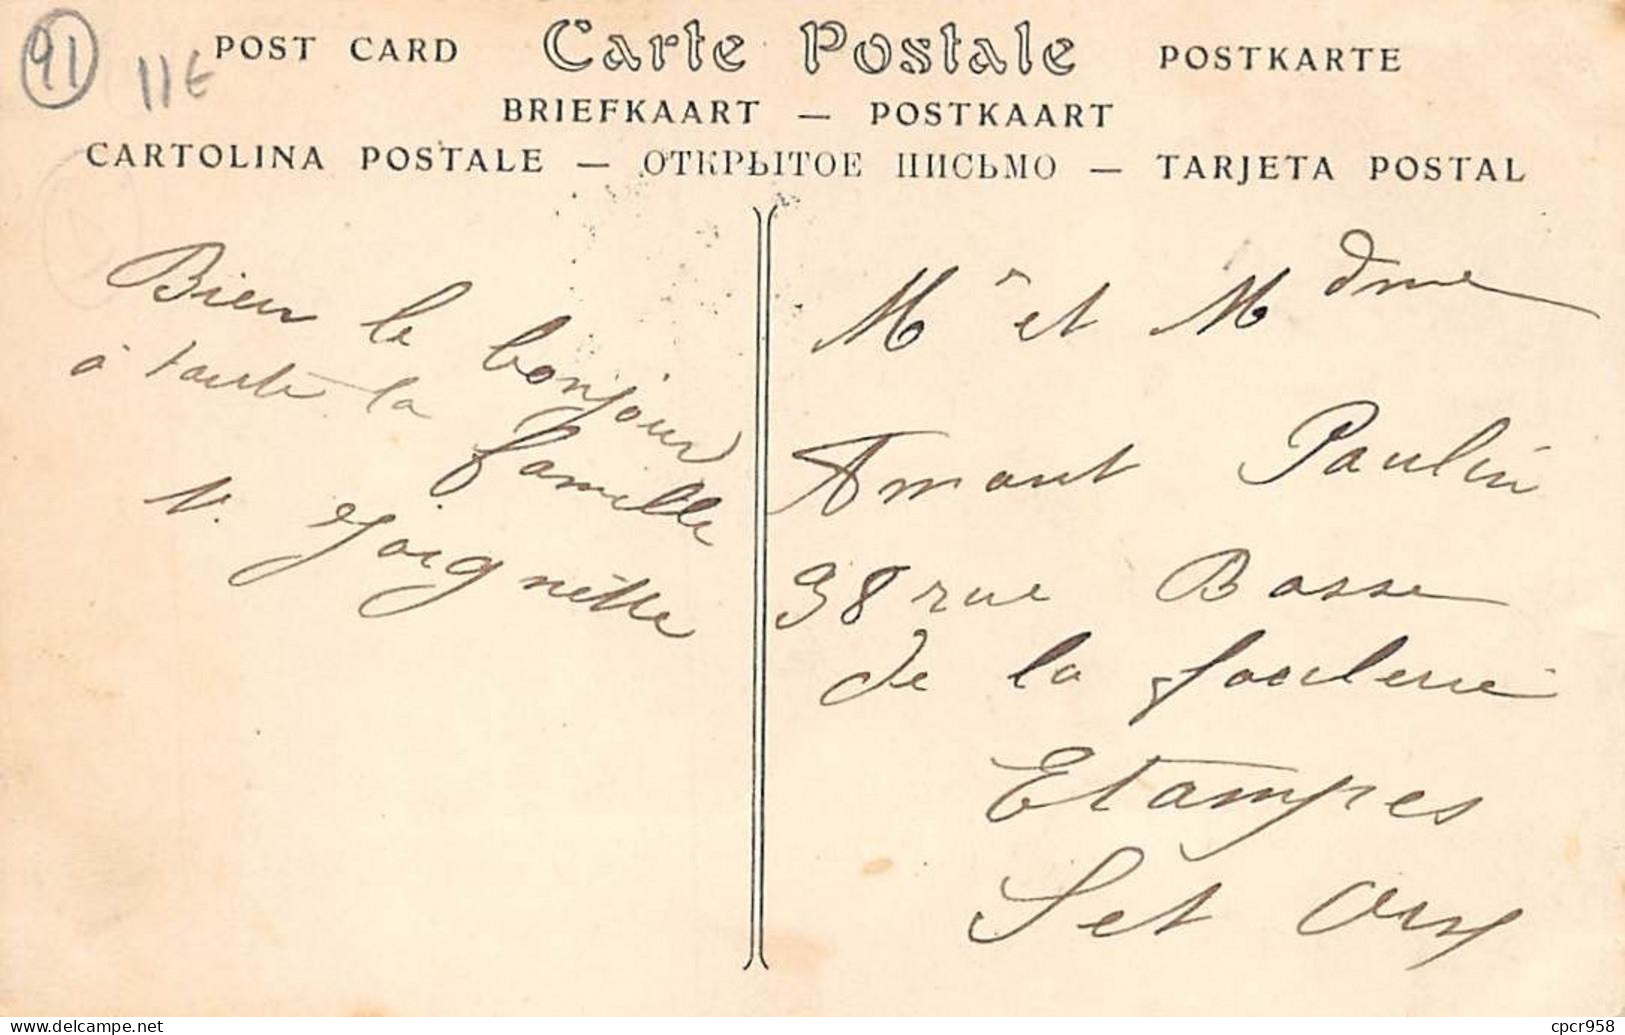 91
11€
POST CARD Carte Postale POSTKARTE
BRIEFKAART — POSTKAART
CARTOLINA POSTALE — ОТКРЫТОЕ ПИСЬМО — TARJETA POSTAL
Bien le bonjour
à toute la famille
V. Joignette
Mr et Mdme
Amant Paulin
38 rue Basse
de la foulerie
Etampes
Set Oise
cpcr958